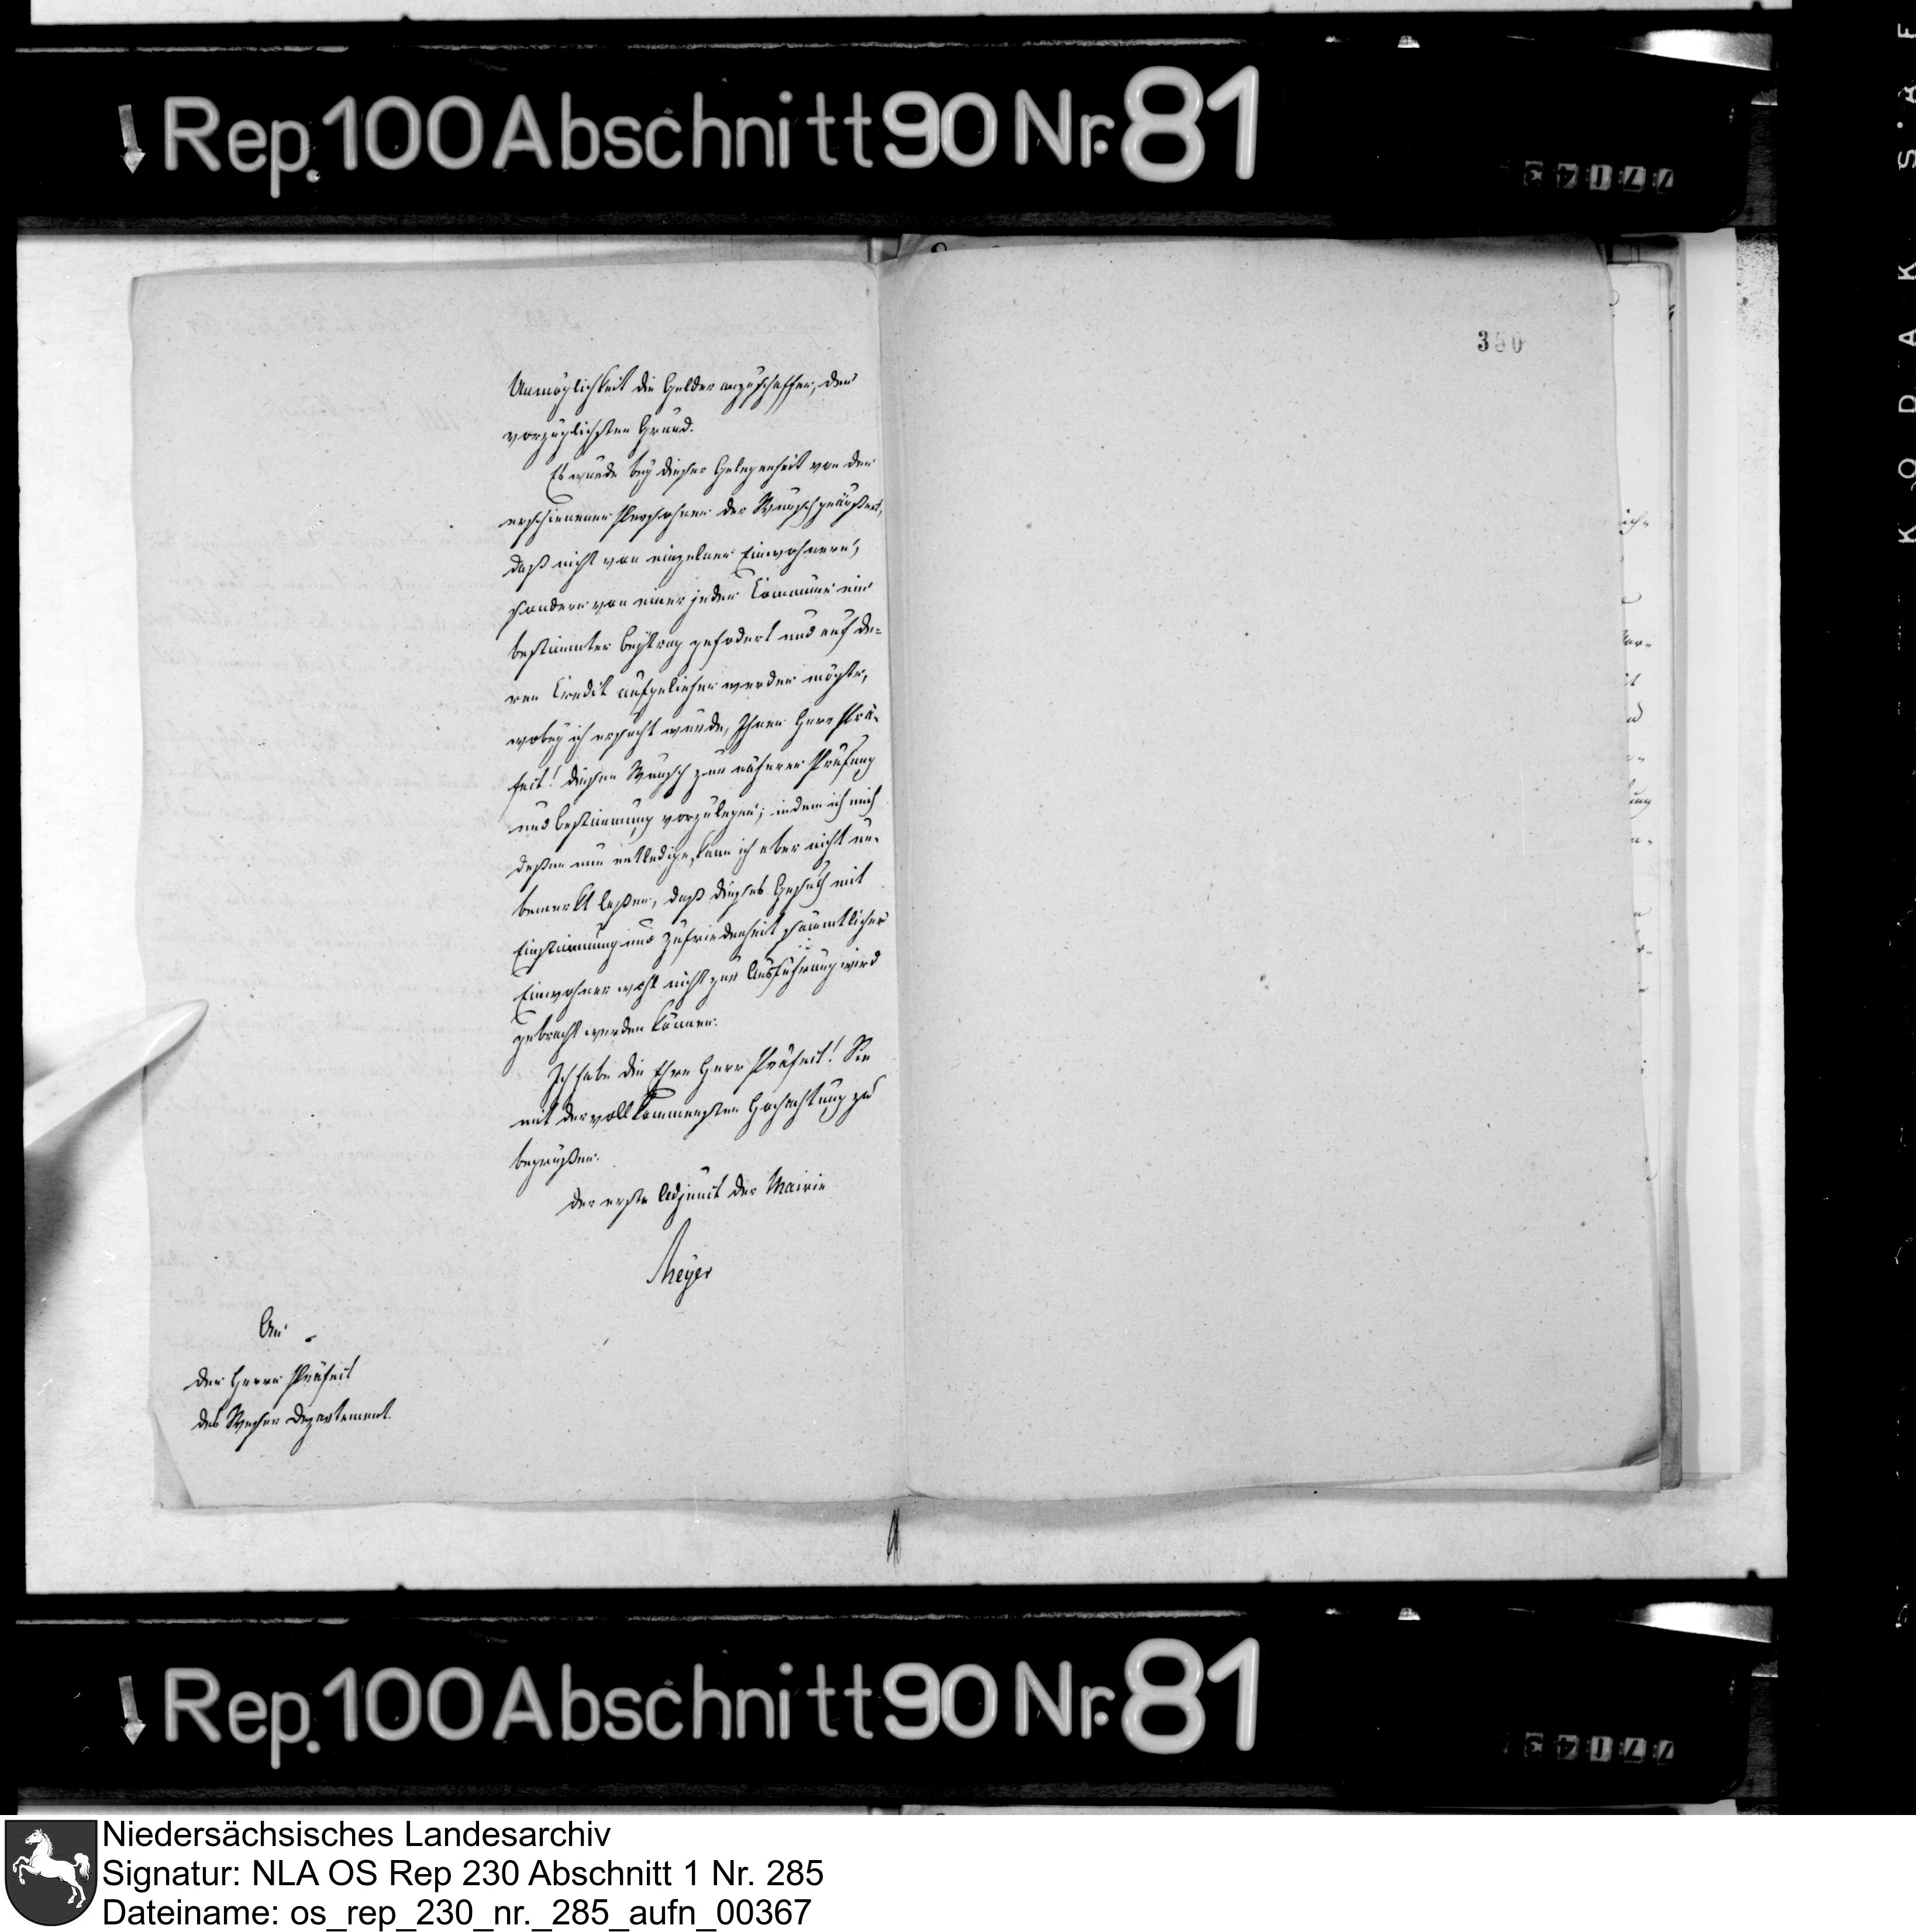 Rep. 100 Abschnitt 90 Nr. 81
350
Unmöglichkeit die Gelder anzuschaffen, den
vorzüglichsten Grund.
Es wurde bey dieser Gelegenheit von den
erschienenen Persohnen der Wunsch geäußert,
daß nicht von einzelnen Einwohnern,
sondern von einer jeden Commüne ein
bestimmter Beytrag gefodert und auf de=
ren Credit aufgeliehen werden mögte,
wobey ich ersucht wurde, Ihnen Herr Prä-
fect! diesen Wunsch zur näheren Prüfung
und Bestimmung vorzulegen; indem ich mich
deßen nun entledige, kann ich aber nicht un-
bemerkt laßen, daß dieses Gesuch mit
Einstimmung und Zufriedenheit sämmtlicher
Einwohner wohl nicht zur Ausführung wird
gebracht werden können.
Ich habe die Ehre Herr Präfect! Sie
mit der vollkommensten Hochachtung zu
begrüßen.
Der erste Adjunct der Mairie
Meyer
An
den Herrn Präfect
des Weser Departement.
Rep. 100 Abschnitt 90 Nr. 81
KODAK SAFE
Niedersächsisches Landesarchiv
Signatur: NLA OS Rep 230 Abschnitt 1 Nr. 285
Dateiname: os_rep_230_nr._285_aufn_00367